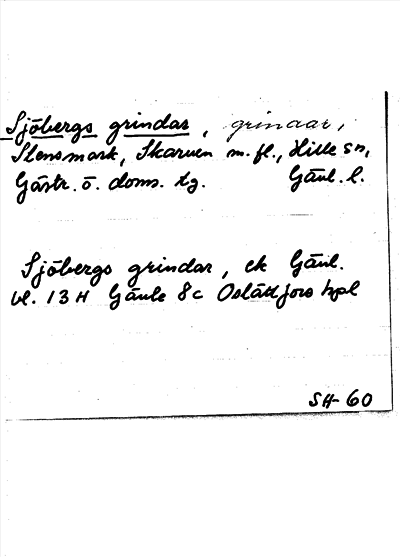 Sjöbergs grindar, grindar,
Stensmark, Skarven m.fl., Hille sn,
Gästr. ö. doms. tg. Gävl. l.
Sjöbergs grindar, ek Gävl.
bl. 13 H Gävle 8c Oslättfors hpl
SH-60